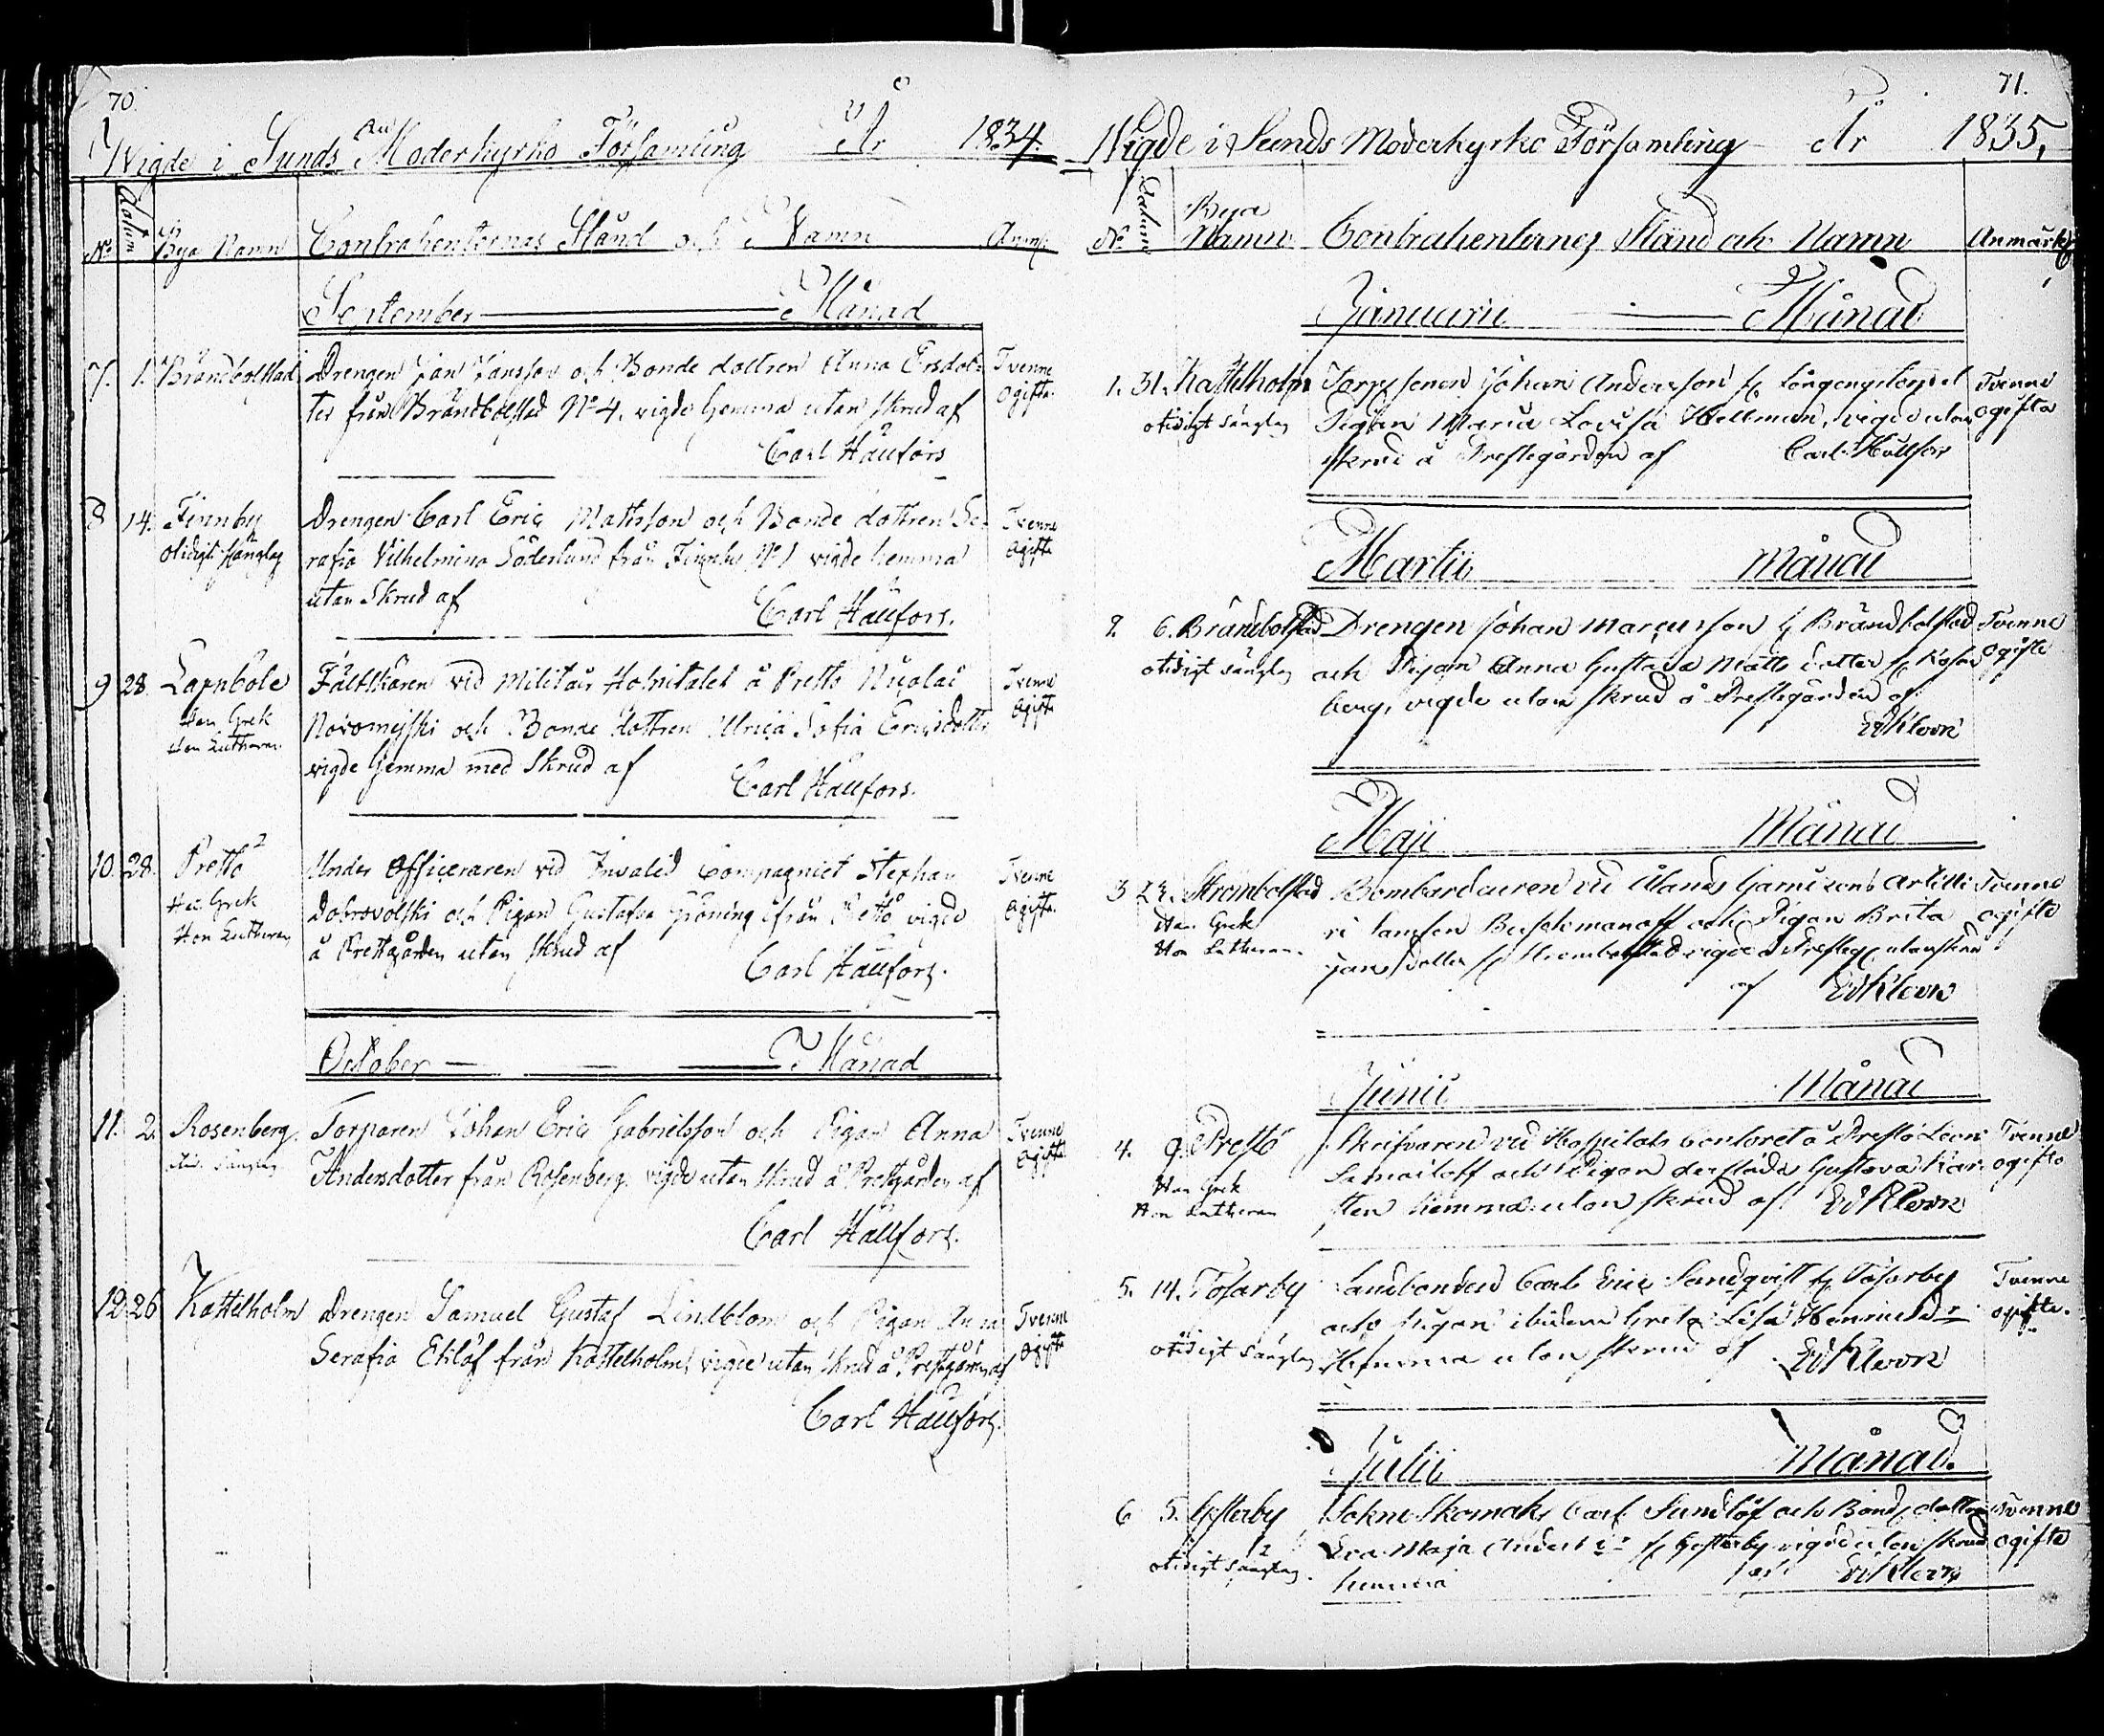 70.
Wigde i Sunds Moderkyrko Församling År 1834.
No Datum Bya Namn Contrahenternas Stånd och Namn Anmk
September Månad
7. 1. Brändbolstad Drengen Jan Jansson och Bonde dottren Anna Ersdot- Tvenne
ter från Brändbolstad No 4. vigde hemma utan skrud af ogifta.
Carl Hällfors
8 14. Finnby Drengen Carl Eric Mattsson och Bonde dottren Se- Tvenne
otidigt sänglag rafia Vilhelmina Söderlund från Finnby No 1 vigde hemma ogifta
utan Skrud af
Carl Hällfors.
9 28. Lappböle Fältskären vid Militair Hospitalet å Prestö Nicolai Tvenne
Han Grek Novomejski och Bonde dottren Ulrica Sofia Ericsdotter ogifta
Hon Lutheran.
vigde hemma med Skrud af
Carl Hällfors.
10. 28. Prestö Under Officeraren vid Invalid Compagniet Stephan Tvenne
Han Grek Dobrovolski och Pigan Gustafva Gröning ifrån Prestö vigde ogifta.
Hon Lutheran
å Prestgården utan skrud af
Carl Hällfors.
October Månad
11. 2. Rosenberg. Torparen Johan Eric Gabrielsson och Pigan Anna Tvenne
Andersdotter från Rosenberg. vigde utan skrud å Prestgården af ogifta
Carl Hällfors.
12. 26 Kastelholm Drengen Samuel Gustaf Lindblom och Pigan Anna Tvenne
Serafia Eklöf från Kastelholm, vigde utan skrud å Prestgården af ogifta
Carl Hällfors.
71.
Wigde i Sunds Moderkyrko Församling År 1835,
No Datum Bya Namn Contrahenternes Stånd och Namn Anmärk
Januarii Månad
1. 31. Kastelholm Johan Andersson fr Tvenne
otidigt sänglag Pigan Maria Lovisa Hellman, vigde utan ogifta
skrud å Prestegården af Carl Hällfors
Martii Månad
2. 6. Brändbolstad Drengen Johan Marcusson fr Brändbolstad Tvenne
otidigt sänglag och Pigan Anna Gustava Matts dotter fr Rosen ogifte
berg, vigde utan skrud å Prestegården af
Maji Månad
3 Strömbolstad Bombarderaren vid Ålands Garnizons Artilli Tvenne
Han Grek ri och Pigan Brita ogifte
Hon Lutheran.
Jansdotter fr Strömbolstad vigde å Presteg utan skrud
af
Junii Månad
4. 9. Prestö Skrifvaren vid Hospitals Contoret å Prestö Leon Tvenne
Han Grek Samailoff och Pigan derstädes Gustava Kar- ogifta
Hon Lutheran
sten hemma utan skrud af
5. 14. Tosarby Landbonden Carl Eric Sandqvist fr Tosarby Tvenne
och Pigan ibidem Greta Lisa Henricsdr ogifte.
otidigt sänglag Hemma utan skrud af
Julii Månad.
6 5. Gesterby Sokne Skomak. Carl Sundlöf och Bond. dottren Tvenne
otidigt sänglag. Eva Maja Andersdr fr Gesterby vigde utan skrud ogifta
hemma af